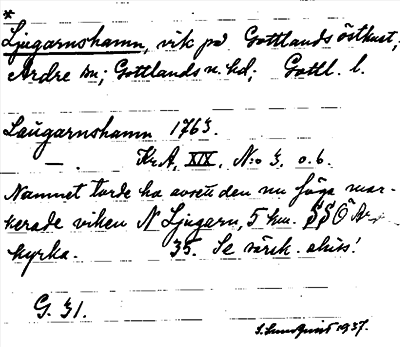 *
Ljugarnshamn, vik på Gottlands östkust;
Ardre sn; Gottlands n. hd; Gottl. l.
Laŭgarnshamn 1763.
— . Kr.A, XIX, N:o 3, o. 6.
Namnet torde ha avsett den nu föga mar-
kerade viken N Ljugarn, 5 km. SSÖ Ar
kyrka. 35. Se särsk. skiss!
G. 31.
S. Lundquist 1937.